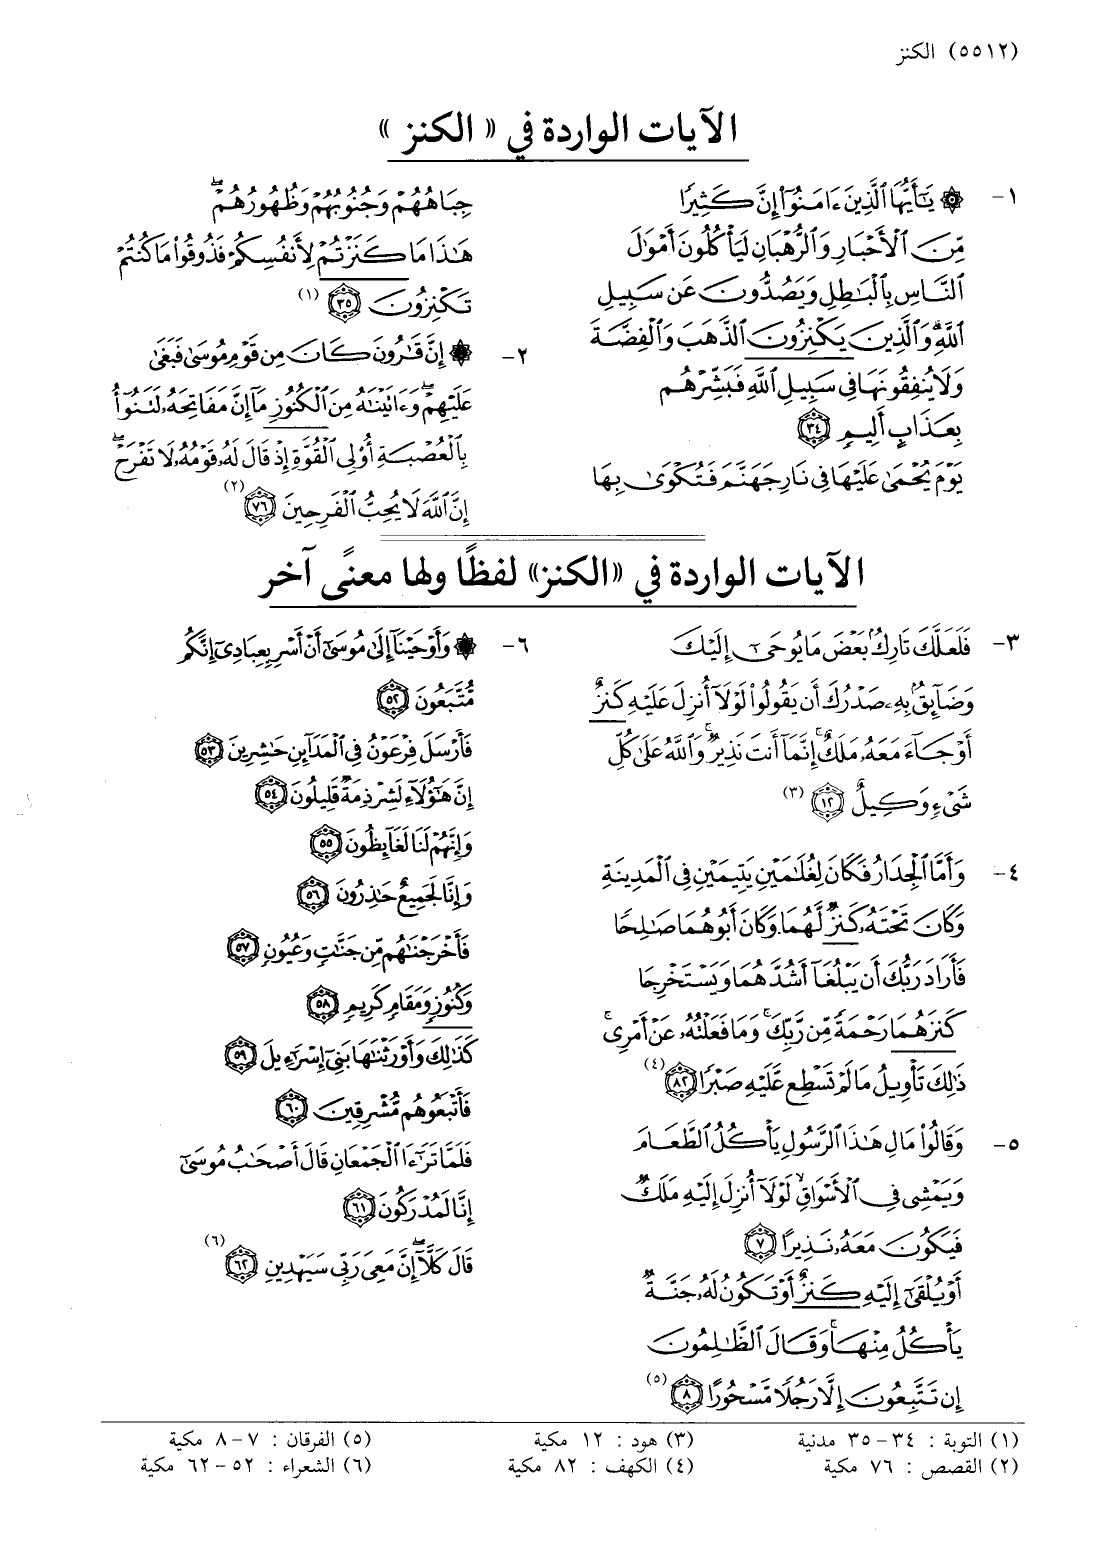 (٥٥١٢) الكنز
الآيات الواردة في «الكنز»
١- ۞ يَٰٓأَيُّهَا ٱلَّذِينَ ءَامَنُوٓا۟ إِنَّ كَثِيرًا
مِّنَ ٱلْأَحْبَارِ وَٱلرُّهْبَانِ لَيَأْكُلُونَ أَمْوَٰلَ
ٱلنَّاسِ بِٱلْبَٰطِلِ وَيَصُدُّونَ عَن سَبِيلِ
ٱللَّهِ ۗ وَٱلَّذِينَ يَكْنِزُونَ ٱلذَّهَبَ وَٱلْفِضَّةَ
وَلَا يُنفِقُونَهَا فِى سَبِيلِ ٱللَّهِ فَبَشِّرْهُم
بِعَذَابٍ أَلِيمٍ ٣٤
يَوْمَ يُحْمَىٰ عَلَيْهَا فِى نَارِ جَهَنَّمَ فَتُكْوَىٰ بِهَا
جِبَاهُهُمْ وَجُنُوبُهُمْ وَظُهُورُهُمْ ۖ
هَٰذَا مَا كَنَزْتُمْ لِأَنفُسِكُمْ فَذُوقُوا۟ مَا كُنتُمْ
تَكْنِزُونَ ٣٥ (١)
٢- ۞ إِنَّ قَٰرُونَ كَانَ مِن قَوْمِ مُوسَىٰ فَبَغَىٰ
عَلَيْهِمْ ۖ وَءَاتَيْنَٰهُ مِنَ ٱلْكُنُوزِ مَآ إِنَّ مَفَاتِحَهُۥ لَتَنُوٓأُ
بِٱلْعُصْبَةِ أُو۟لِى ٱلْقُوَّةِ إِذْ قَالَ لَهُۥ قَوْمُهُۥ لَا تَفْرَحْ ۖ
إِنَّ ٱللَّهَ لَا يُحِبُّ ٱلْفَرِحِينَ ٧٦ (٢)
الآيات الواردة في «الكنز» لفظًا ولها معنًى آخر
٣- فَلَعَلَّكَ تَارِكٌۢ بَعْضَ مَا يُوحَىٰٓ إِلَيْكَ
وَضَآئِقٌۢ بِهِۦ صَدْرُكَ أَن يَقُولُوا۟ لَوْلَآ أُنزِلَ عَلَيْهِ كَنزٌ
أَوْ جَآءَ مَعَهُۥ مَلَكٌ ۚ إِنَّمَآ أَنتَ نَذِيرٌ ۚ وَٱللَّهُ عَلَىٰ كُلِّ
شَىْءٍ وَكِيلٌ ١٢ (٣)
٤- وَأَمَّا ٱلْجِدَارُ فَكَانَ لِغُلَٰمَيْنِ يَتِيمَيْنِ فِى ٱلْمَدِينَةِ
وَكَانَ تَحْتَهُۥ كَنزٌ لَّهُمَا وَكَانَ أَبُوهُمَا صَٰلِحًا
فَأَرَادَ رَبُّكَ أَن يَبْلُغَآ أَشُدَّهُمَا وَيَسْتَخْرِجَا
كَنزَهُمَا رَحْمَةً مِّن رَّبِّكَ ۚ وَمَا فَعَلْتُهُۥ عَنْ أَمْرِى ۚ
ذَٰلِكَ تَأْوِيلُ مَا لَمْ تَسْطِع عَّلَيْهِ صَبْرًا ٨٢ (٤)
٥- وَقَالُوا۟ مَالِ هَٰذَا ٱلرَّسُولِ يَأْكُلُ ٱلطَّعَامَ
وَيَمْشِى فِى ٱلْأَسْوَاقِ ۙ لَوْلَآ أُنزِلَ إِلَيْهِ مَلَكٌ
فَيَكُونَ مَعَهُۥ نَذِيرًا ٧
أَوْ يُلْقَىٰٓ إِلَيْهِ كَنزٌ أَوْ تَكُونُ لَهُۥ جَنَّةٌ
يَأْكُلُ مِنْهَا ۚ وَقَالَ ٱلظَّٰلِمُونَ
إِن تَتَّبِعُونَ إِلَّا رَجُلًا مَّسْحُورًا ٨ (٥)
٦- ۞ وَأَوْحَيْنَآ إِلَىٰ مُوسَىٰٓ أَنْ أَسْرِ بِعِبَادِىٓ إِنَّكُم
مُّتَّبَعُونَ ٥٢
فَأَرْسَلَ فِرْعَوْنُ فِى ٱلْمَدَآئِنِ حَٰشِرِينَ ٥٣
إِنَّ هَٰٓؤُلَآءِ لَشِرْذِمَةٌ قَلِيلُونَ ٥٤
وَإِنَّهُمْ لَنَا لَغَآئِظُونَ ٥٥
وَإِنَّا لَجَمِيعٌ حَٰذِرُونَ ٥٦
فَأَخْرَجْنَٰهُم مِّن جَنَّٰتٍ وَعُيُونٍ ٥٧
وَكُنُوزٍ وَمَقَامٍ كَرِيمٍ ٥٨
كَذَٰلِكَ وَأَوْرَثْنَٰهَا بَنِىٓ إِسْرَٰٓءِيلَ ٥٩
فَأَتْبَعُوهُم مُّشْرِقِينَ ٦٠
فَلَمَّا تَرَٰٓءَا ٱلْجَمْعَانِ قَالَ أَصْحَٰبُ مُوسَىٰٓ
إِنَّا لَمُدْرَكُونَ ٦١
قَالَ كَلَّآ ۖ إِنَّ مَعِىَ رَبِّى سَيَهْدِينِ ٦٢ (٦)
(١) التوبة : ٣٤ - ٣٥ مدنية
(٢) القصص : ٧٦ مكية
(٣) هود : ١٢ مكية
(٤) الكهف : ٨٢ مكية
(٥) الفرقان : ٧ - ٨ مكية
(٦) الشعراء : ٥٢ - ٦٢ مكية